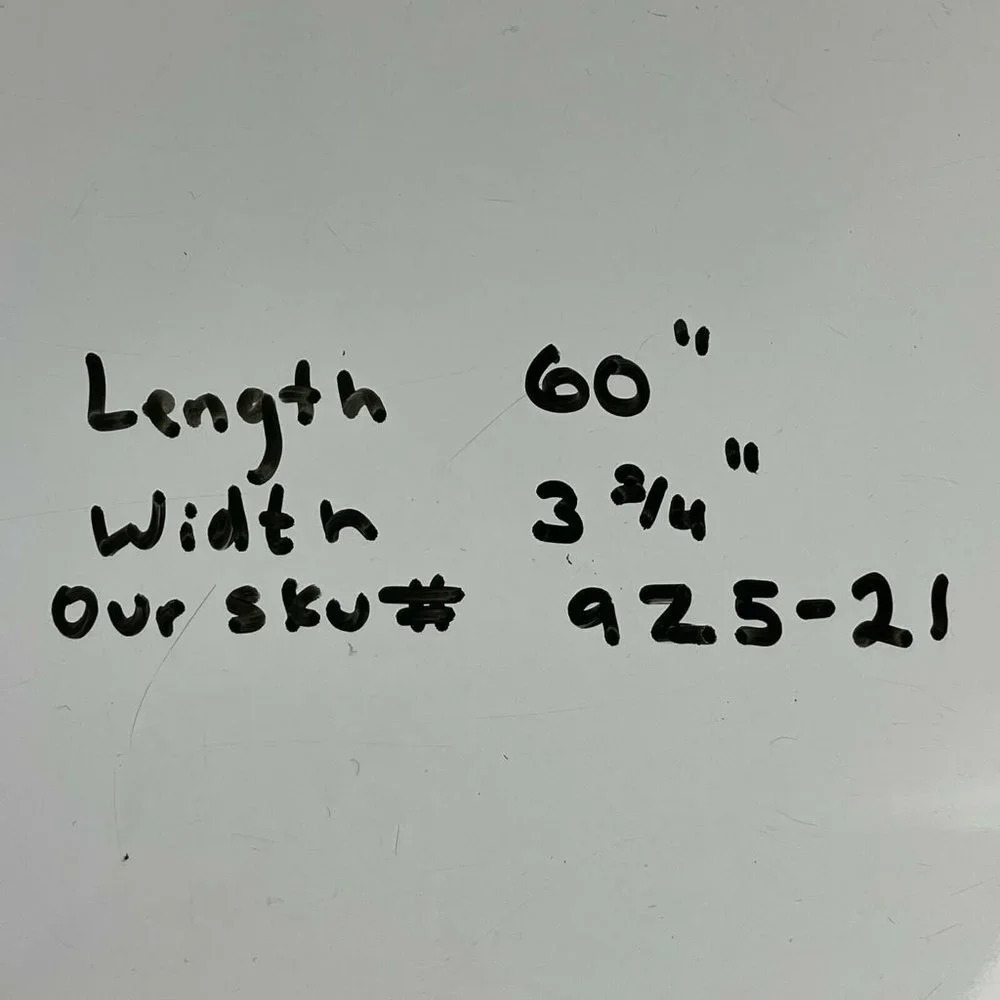 Length 60"
Width 3 3/4"
Our sku# 925-21